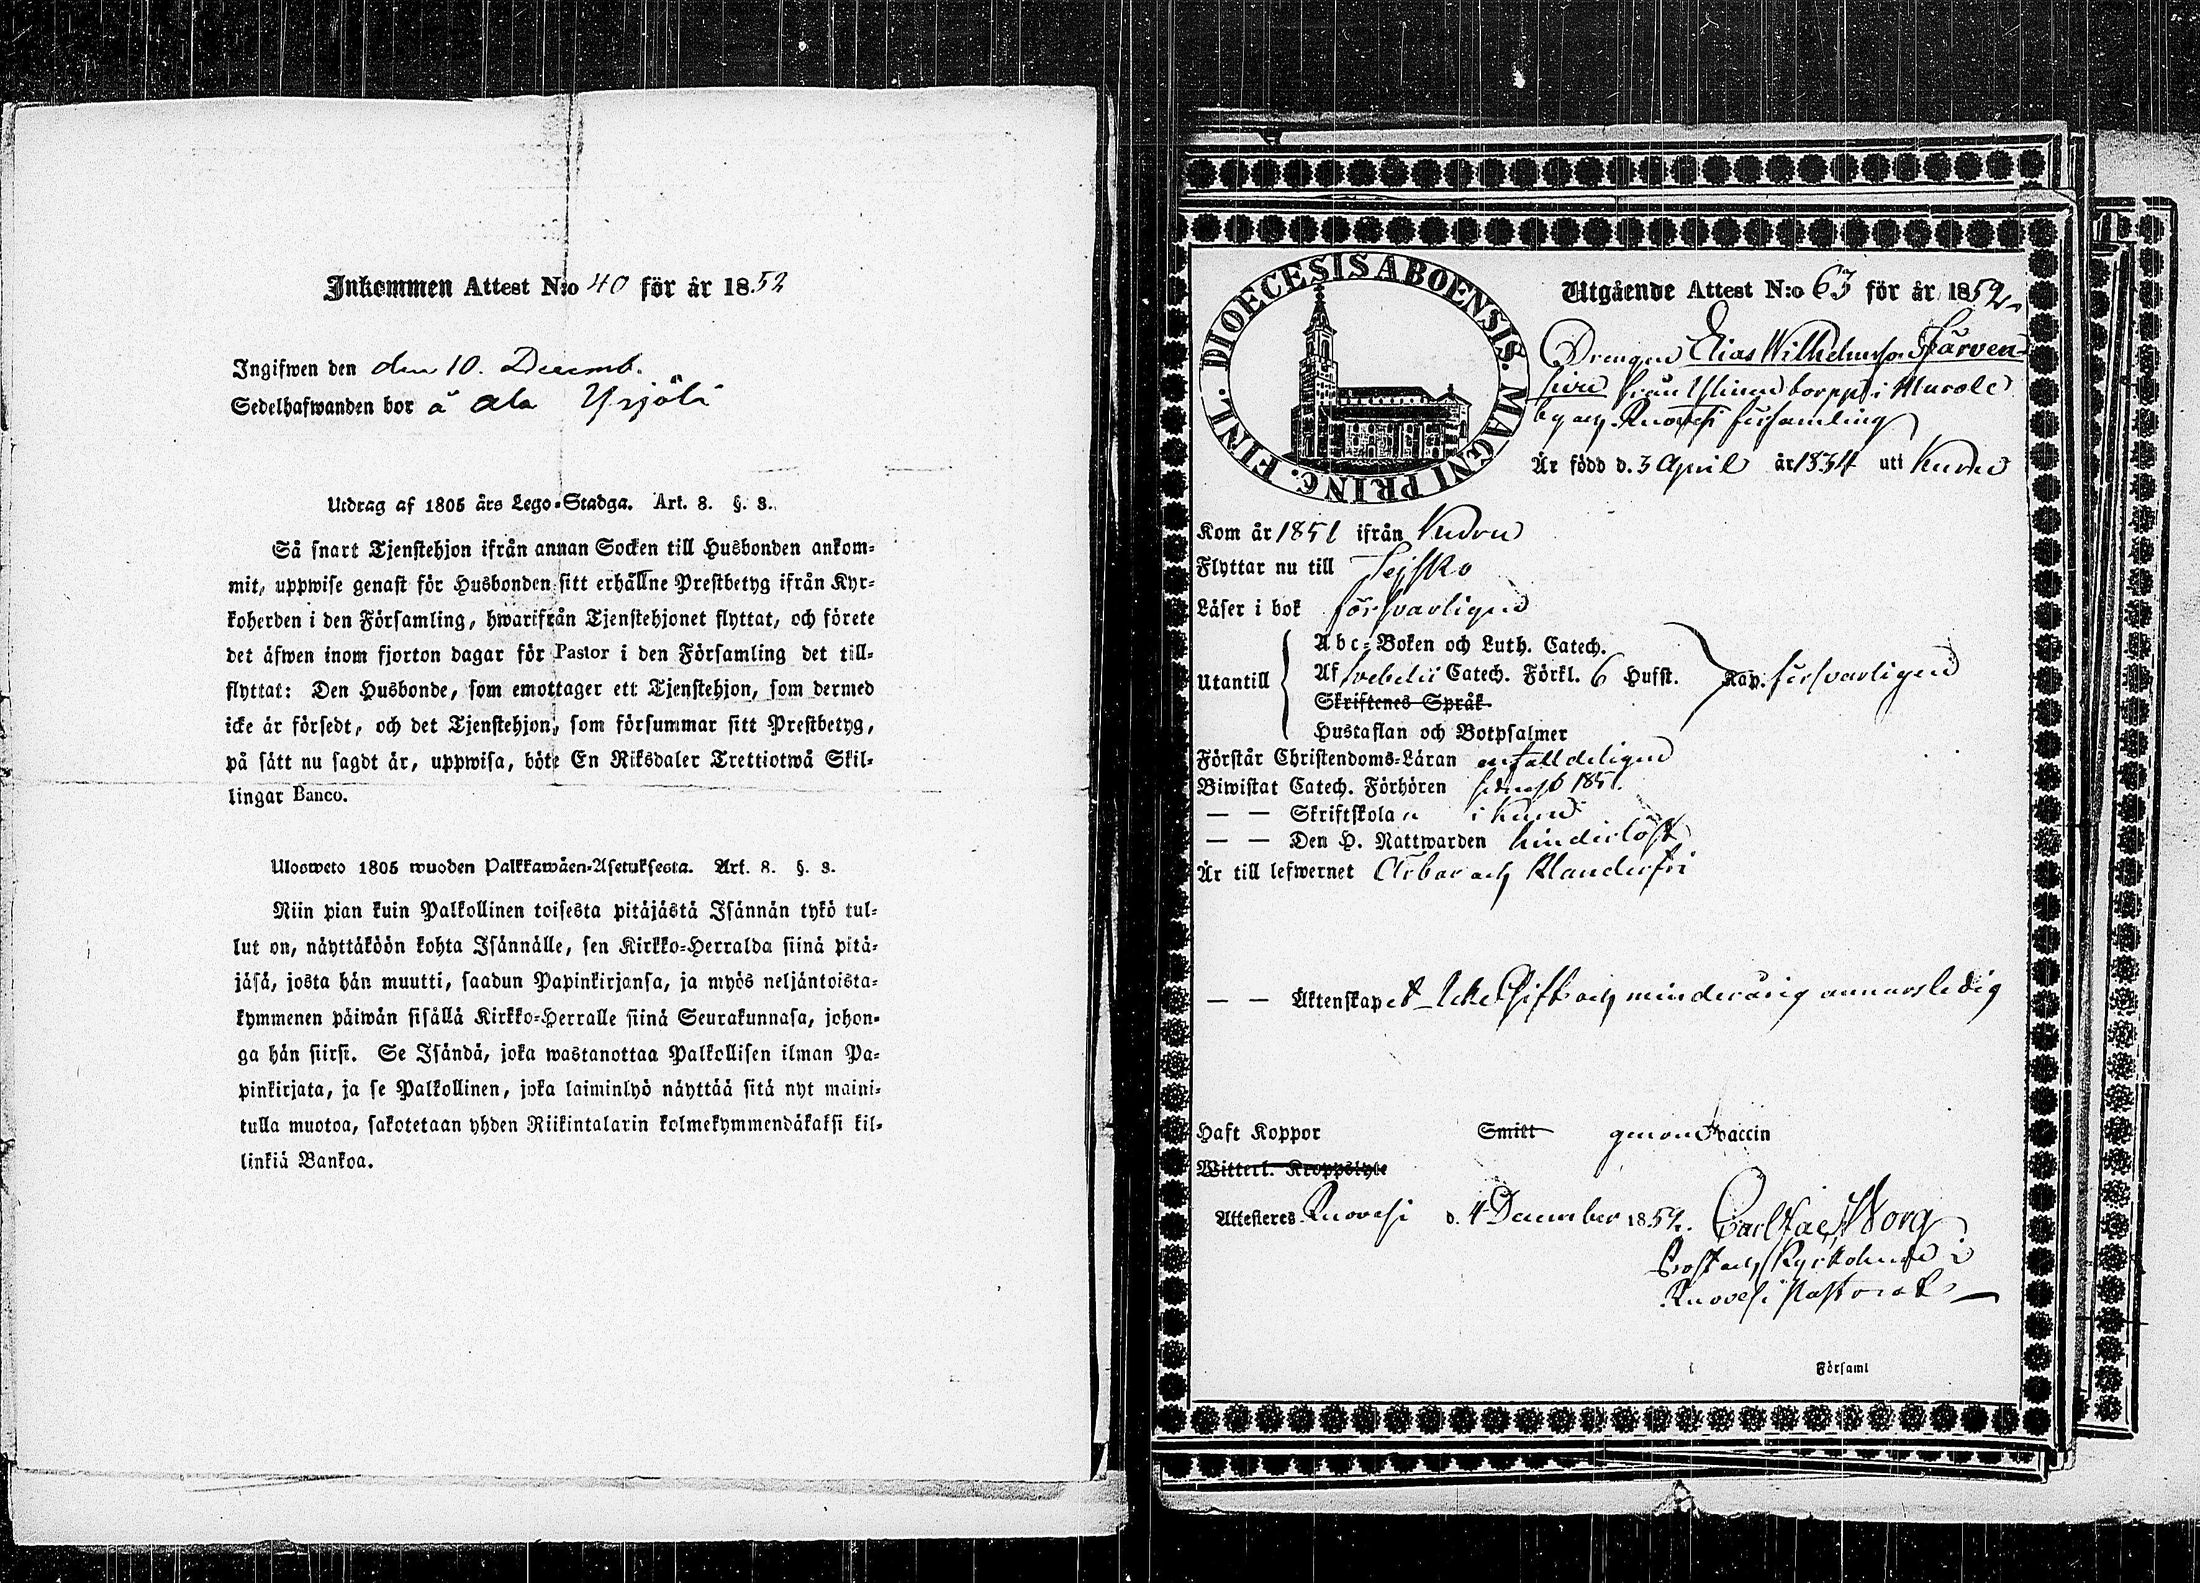 Inkommen Attest N:o 40 för år 1852
Ingifwen den den 10. Decemb.
Sedelhafwanden bor å Ala Yrjölä
Utdrag af 1805 års Lego-Stadga. Art. 8. §. 3.
Så snart Tjenstehjon ifrån annan Socken till Husbonden ankom-
mit, uppwise genast för Husbonden sitt erhållne Prestbetyg ifrån Kyr-
koherden i den Församling, hwarifrån Tjenstehjonet flyttat, och förete
det äfwen inom fjorton dagar för Pastor i den Församling det till-
flyttat: Den Husbonde, som emottager ett Tjenstehjon, som dermed
icke är försedt, och det Tjenstehjon, som försummar sitt Prestbetyg,
på sätt nu sagdt är, uppwisa, böte En Riksdaler Trettiotwå Skil-
lingar Banco.
Ulosweto 1805 wuoden Palkkawäen-Asetuksesta. Art. 8. §. 3.
Niin pian kuin Palkollinen toisesta pitäjästä Isännän tykö tul-
lut on, näyttäköön kohta Isännälle, sen Kirkko-Herralda siinä pitä-
jäsä, josta hän muutti, saadun Papinkirjansa, ja myös neljäntoista-
kymmenen päiwän sisällä Kirkko-Herralle siinä Seurakunnasa, johon-
ga hän siirsi. Se Isändä, joka wastanottaa Palkollisen ilman Pa-
pinkirjata, ja se Palkollinen, joka laiminlyö näyttää sitä nyt maini-
tulla muotoa, sakotetaan yhden Riikintalarin kolmekymmendäkaksi kil-
linkiä Bankoa.
DIOECESIS ABOENSIS. MAGNI PRINC. FINL.
Utgående Attest N:o 63 för år 1852
Drengen Elias Wilhelmsson Järven-
sivu från torpp i Murole
by och Ruovesi församling
Är född d. 3 April år 1834 uti Kuru
Kom år 1851 ifrån Kuru
Flyttar nu till Teisko
Läser i bok försvarligen
Abc-Boken och Luth. Catech.
Utantill Af Svebelii Catech. Förkl. 6 Hufst. Kap. försvarligen
Skriftenes Språk
Hustaflan och Botpsalmer
Förstår Christendoms-Läran enfalldeligen
Biwistat Catech. Förhören senast 1851.
— — Skriftskola i Kuru
— — Den H. Nattwarden hinderlöst
Är till lefwernet Ärbar och Klanderfri
— — Äktenskapet Icke Gift och minderårig annars ledig
Haft Koppor Smitt genom vaccin
Witterl. Kroppslyte
Attesteres Ruovesi d. 4 December 1852. Carl Jac. Borg
Prost och Kyrkoherde i
Ruovesi Pastorat
i Församl